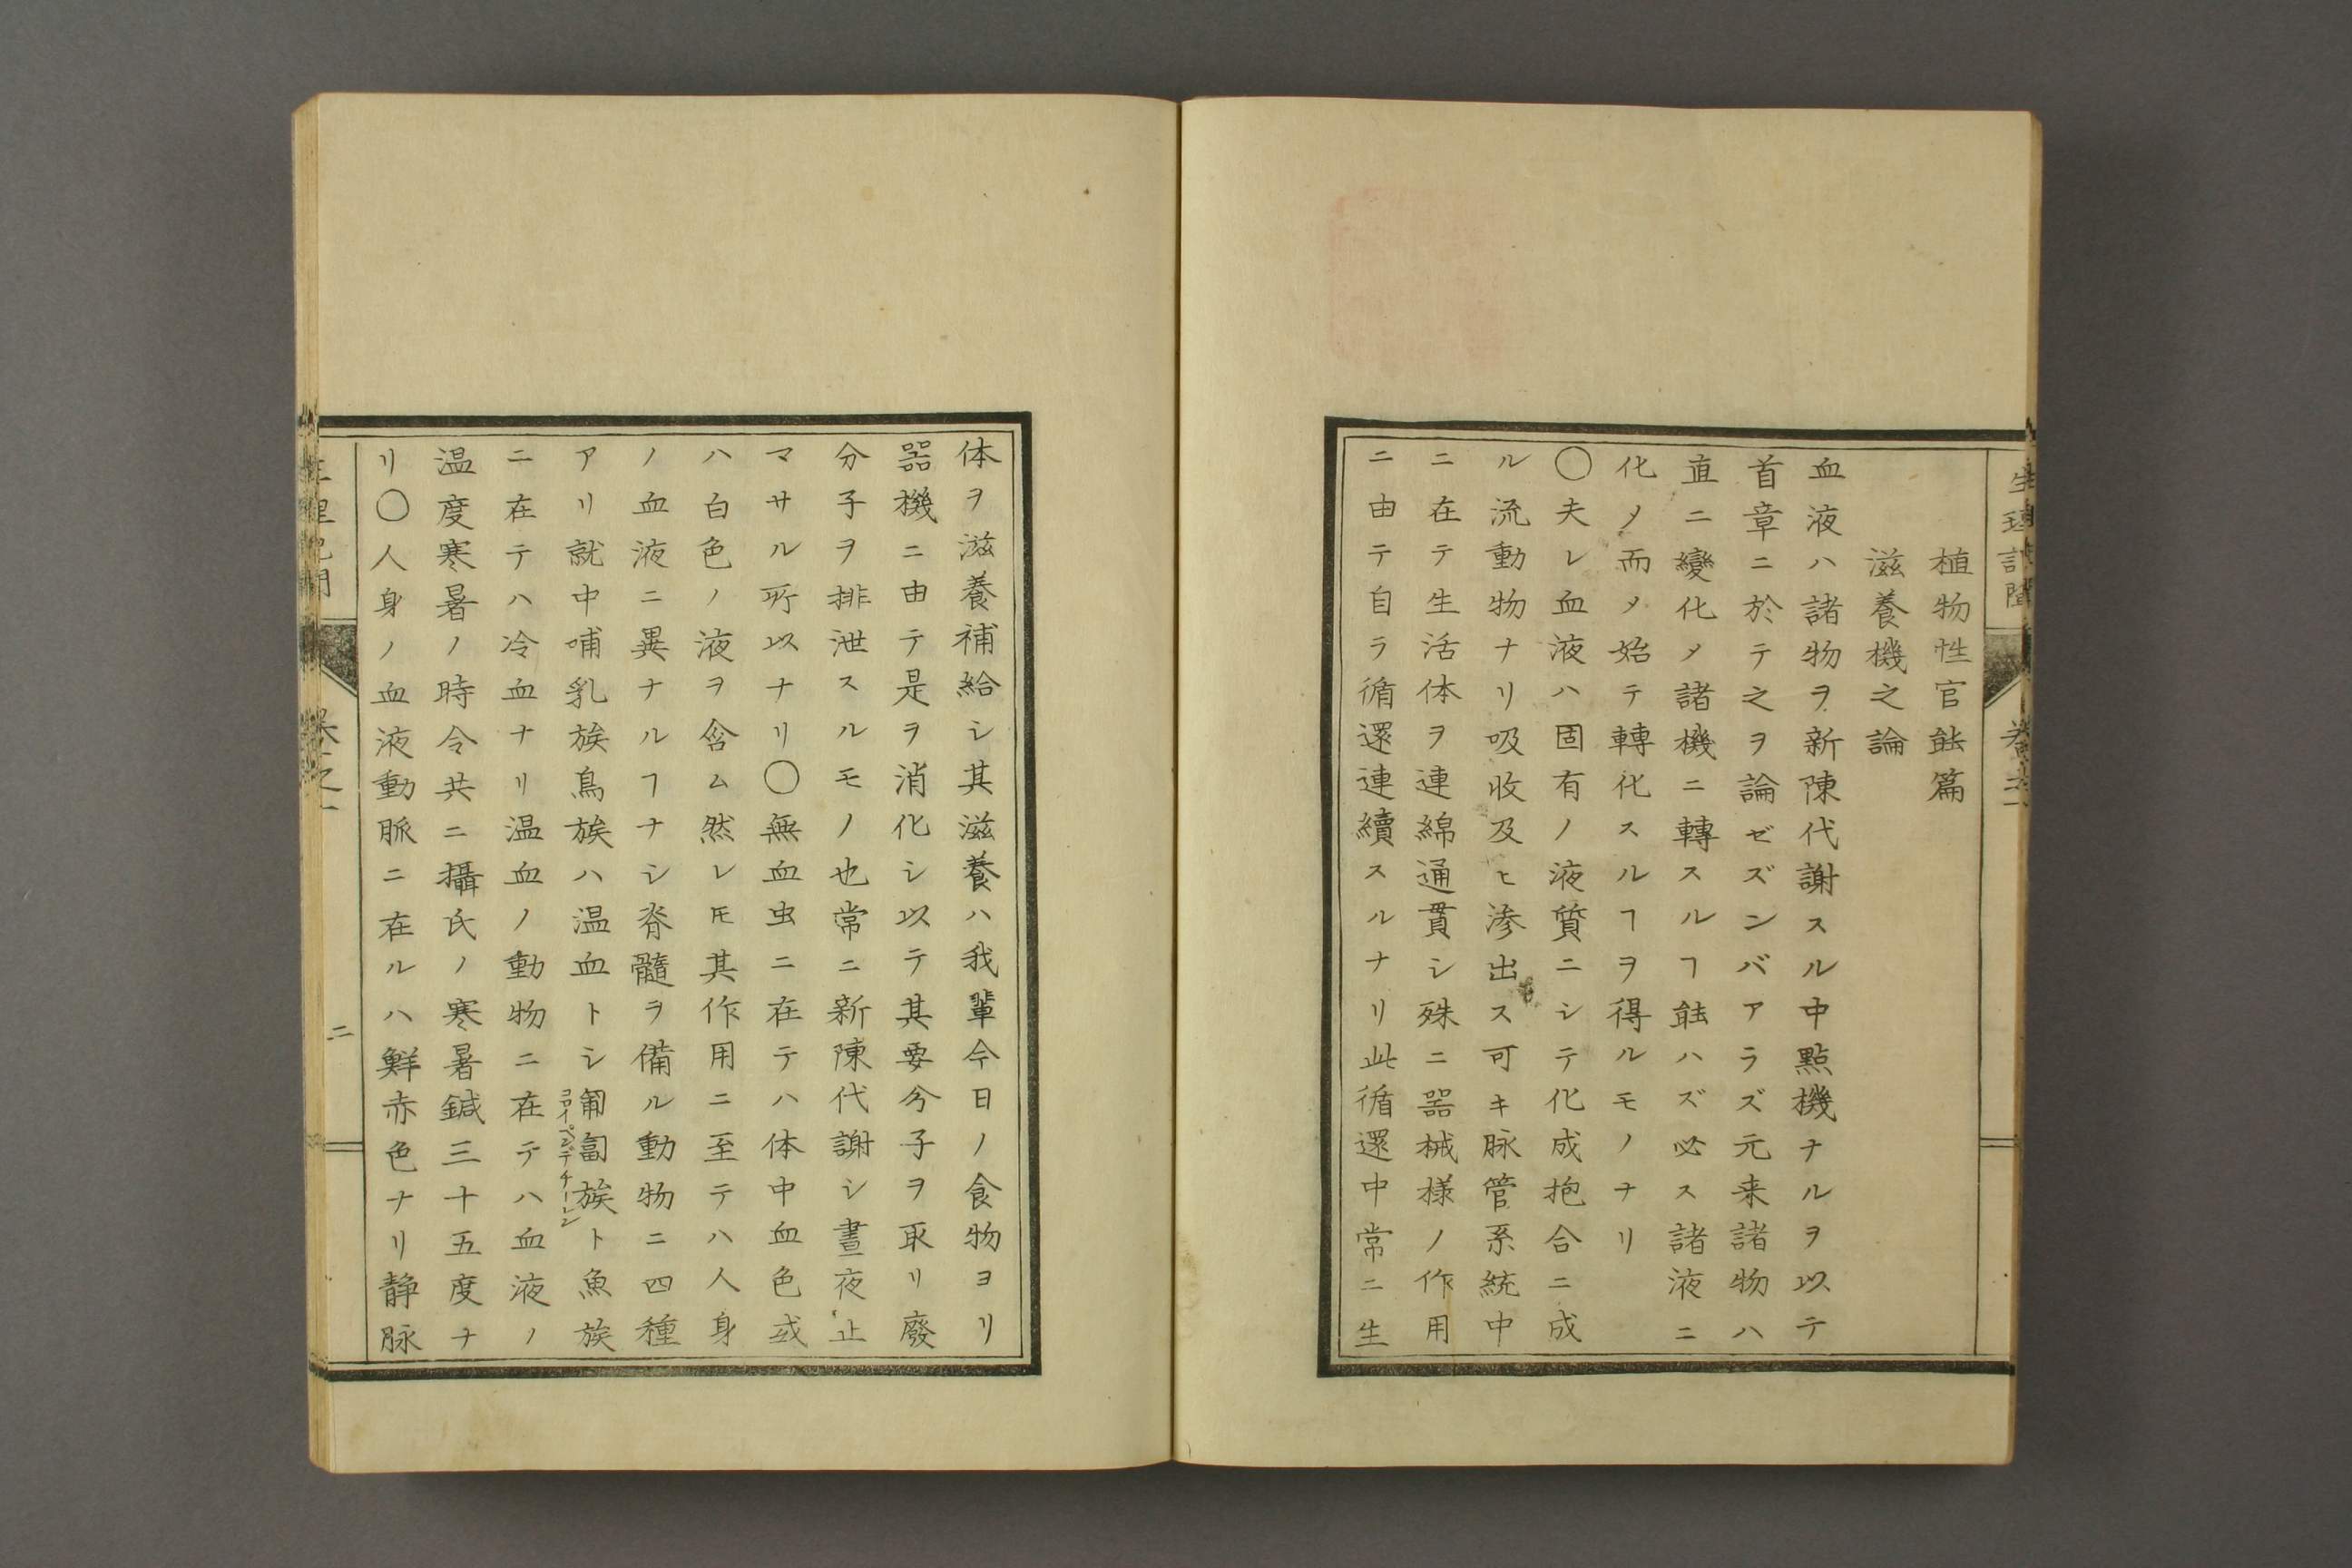 植物性官能篇
滋養機之論
血液ハ諸物ヲ新陳代謝スル中點機ナルヲ以テ
首章ニ於テ之ヲ論ゼズンバアラズ元来諸物ハ
直ニ變化メ諸機ニ轉スルヿ能ハズ必ス諸液ニ
化メ而メ始テ轉化スルヿヲ得ルモノナリ
〇夫レ血液ハ固有ノ液質ニシテ化成抱合ニ成
ル流動物ナリ吸收及ヒ滲出ス可キ脉管系統中
ニ在テ生活体ヲ連綿通貫シ殊ニ器械様ノ作用
ニ由テ自ラ循還連續スルナリ此循還中常ニ生
体ヲ滋養補給シ其滋養ハ我輩今日ノ食物ヨリ
器機ニ由テ是ヲ消化シ以テ其要分子ヲ取リ廢
分子ヲ排泄スルモノ也常ニ新陳代謝シ晝夜止
マサル所以ナリ〇無血虫ニ在テハ体中血色或
ハ白色ノ液ヲ含ム然レ𪜈其作用ニ至テハ人身
ノ血液ニ異ナルヿナシ脊髓ヲ備ル動物ニ四種
アリ就中哺乳族鳥族ハ温血トシ匍匐族ト魚族
コロイペンデチーレン
ニ在テハ冷血ナリ温血ノ動物ニ在テハ血液ノ
温度寒暑ノ時令共ニ攝氏ノ寒暑鍼三十五度ナ
リ〇人身ノ血液動脈ニ在ルハ鮮赤色ナリ静脉
二